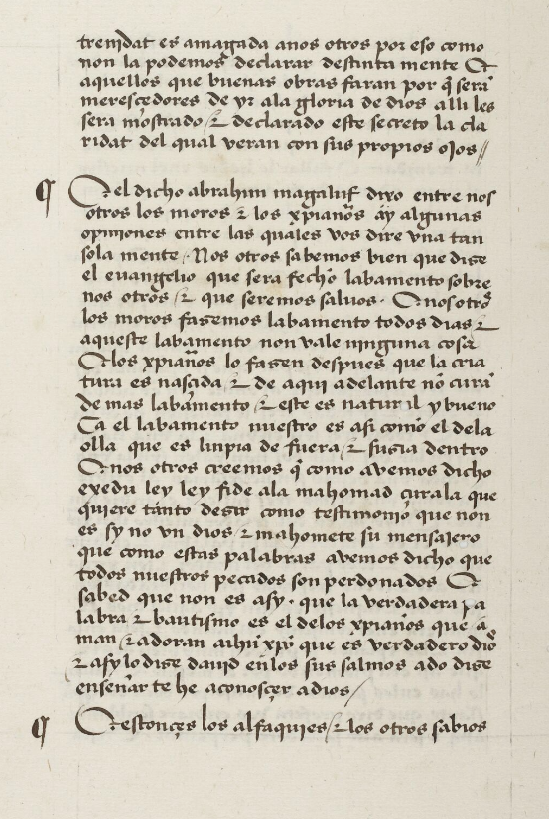 trenidat es amagada a nos otros por eso como
non la podemos declarar destinta mente Et
aquellos que buenas obras faran por q̃ sera
meresçedores de yr ala gloria de dios alli les
sera mostrado / ⁊ declarado este secreto la cla
ridat del qual veran con sus propios ojos //
¶ Et el dicho abrahim magaluf dixo entre nos
otros los moros ⁊ los xp̃ianos ay algunas
opiniones entre las quales vos dire vna tan
sola mente / Nos otros sabemos bien que dise
el euangelio que sera fecho labamento sobre
nos otros / ⁊ que seremos saluos · Et nos otros
los moros fasemos labamento todos dias ⁊
aqueste labamento non vale ninguna cosa
Et los xp̃ianos lo fasen despues que la cria
tura es nasçida ⁊ de aqui adelante nõ cura
de mas labamento / ⁊ este es natural y bueno
Ca el labamento nuestro es asi como el dela
olla que es linpia de fuera / ⁊ susia dentro
Et nos otros creemos q̃ como avemos dicho
exedu ley ley fide ala mahomad çurala que
quiere tanto desir como testimonio que non
es sy no vn dios / ⁊ mahomete su mensajero
que como estas palabras avemos dicho que
todos nuestros pecados son perdonados Et
sabed que non es asy · que la verdadera pa
labra ⁊ bautismo es el delos xp̃ianos que a
man / ⁊ adoran a ihũ xp̃o que es verdadero dio
⁊ asy lo dise dauid en los sus salmos ado dise
enseñar te he a conosçer a dios /
¶ Et estonçes los alfaquies / ⁊ los otros sabios